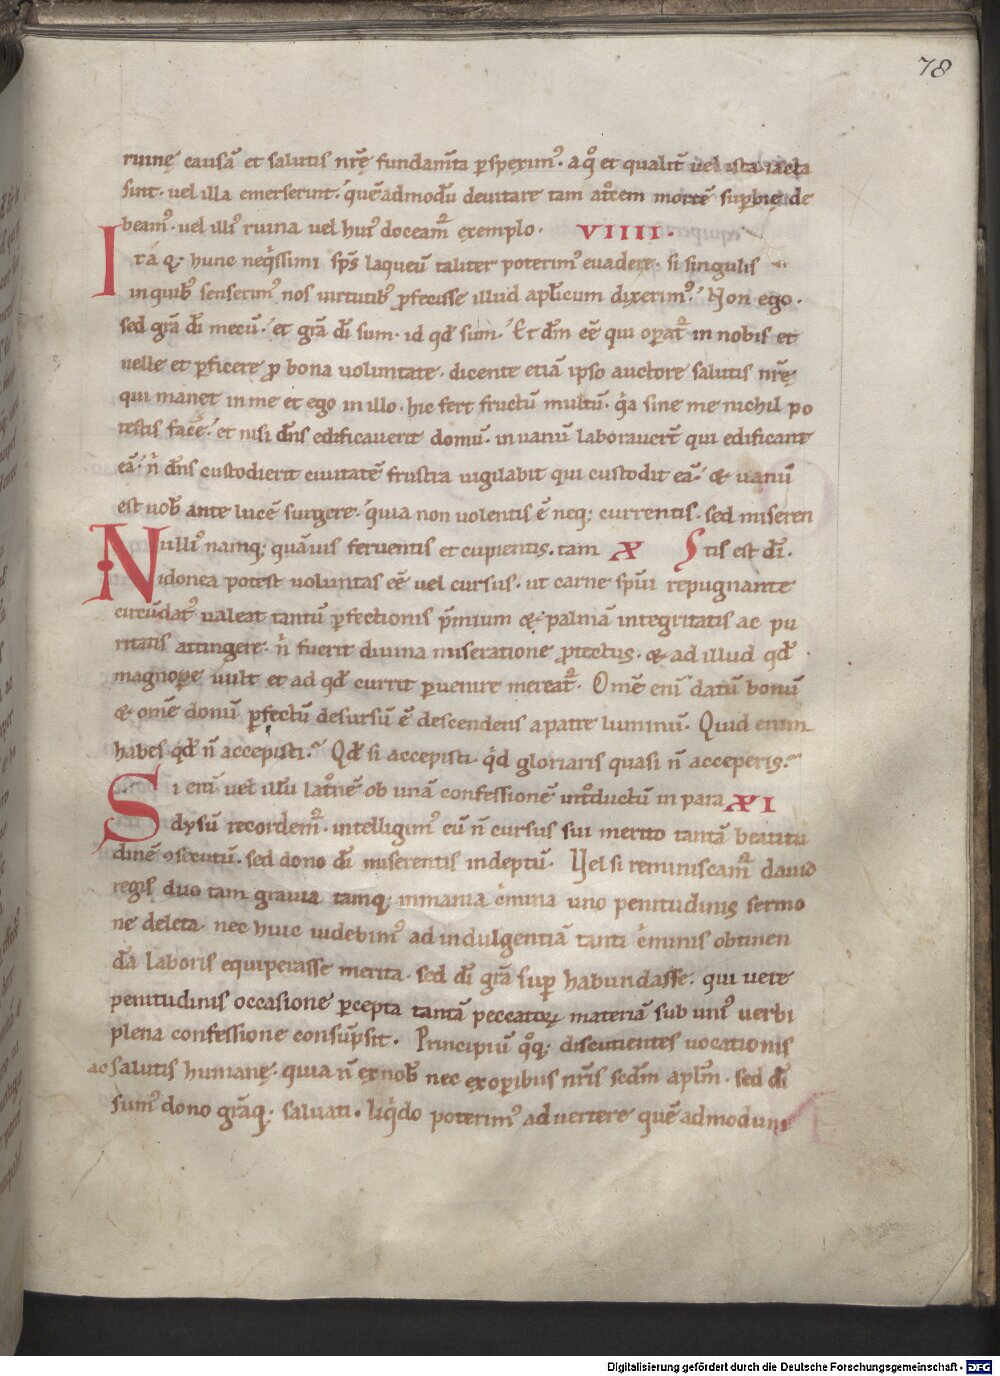 78
ruinę causā et salutis nr̄ę fundam̄ta ꝑspeximꝰ. a qͦ et qualit̄ uel ista iacta
sint. uel illa emerserint. quēadmodū deuitare tam atͦcem mortē suꝑbię de
beamꝰ. uel illiꝰ ruina uel huiꝰ doceamᷣ exemplo. VIIII.
Ita q; hunc neqͥssimi sp̄s laqueū taliter poterimꝰ euadere. si singulis
in quibꝰ senserimꝰ nos uirtutibꝰ ꝓfecisse illud apl̄icum dixerimꝰ. Non ego.
sed gr̄a dī mecū. et gr̄a dī sum. id qd̄ sum. Et dm̄ eē qui oꝑatᷣ in nobis et
uelle et ꝑficere ꝓ bona uoluntate. dicente etiā ipso auctore salutis nr̄ę
qui manet in me et ego in illo. hic fert fructū multū. qͥa sine me nichil po
testis facē. et nisi dn̄s edificauerit domū. in uanū laborauer̄t qui edificant
eā. n̄ dn̄s custodierit ciuitatē frustra uigilabit qui custodit eā. & uanū
est uob̄ ante lucē surgere. quia non uolentis ē neq; currentis. sed miseren
Nulliꝰ namq; quāuis feruentis et cupientis. tam X Stis est dī.
idonea potest uoluntas eē uel cursus. ut carne sp̄ui repugnante
circūdatꝰ ualeat tantū ꝑfectionis p̄mium & palmā integritatis ac pu
ritatis attingere. n̄ fuerit diuina miseratione ꝓtectus. & ad illud qd̄
magnoꝑe uult et ad qd̄ currit ꝑuenire mereatᷣ. Omē eni datū bonū
& omē donū ꝑfectū desursū ē descendens a patre luminū. Quid enim
habes qd̄ n̄ accepisti? Qd̄ si accepisti. qͥd gloriaris quasi n̄ acceperis?
Si eni uel illū latͦnē ob unā confessionē intͦductū in para XI
dysū recordemᷣ. intelligimꝰ eū n̄ cursus sui merito tantā beatitu
dinē ꝯsecutū. sed dono dī miserentis indeptū. Uel si reminiscamᷣ dauid
regis duo tam grauia tamq; inmania cͥmina uno penitudinis sermo
ne deleta. nec huic uidebimꝰ ad indulgentiā tanti cͥminis obtinen
dā laboris equiperasse merita. sed dī gr̄a suꝑ habundasse. qui uere
penitudinis occasione ꝑcepta tantā peccatoꝝ materiā sub uniꝰ uerbi
plena confessione consūpsit. Principiū qͦq; discutientes uocationis
ac salutis humanę. quia n̄ ex nob̄ nec ex oꝑibus nr̄is scd̄m apl̄m. sed dī
sumꝰ dono gr̄aq; saluati. liqͥdo poterimꝰ aduertere quē admodum
Digitalisierung gefördert durch die Deutsche Forschungsgemeinschaft - DFG